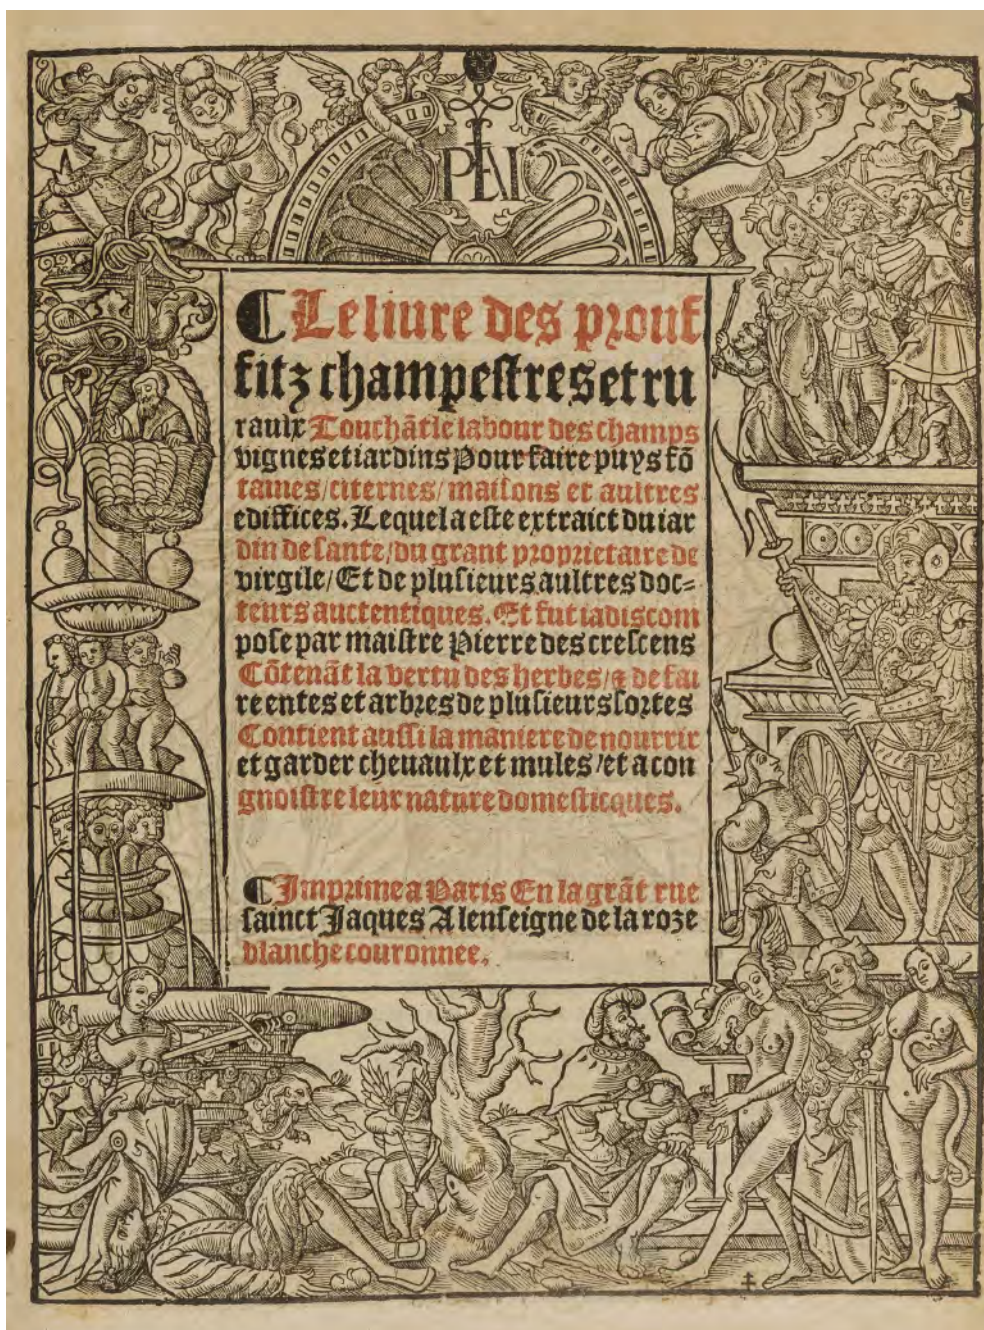 PEAI
¶ Le liure des prouf
fitz champestres et ru
raulx Touchãt le labour des champs
vignes et iardins Pour faire puys fõ
taines/citernes/maisons et aultres
edifices. Lequel a este extraict du iar
din de sante/du grant proprietaire de
virgile/Et de plusieurs aultres doc-
teurs auctentiques. Et fut iadis com
pose par maistre Pierre des crescens
Cõtenãt la vertu des herbes/& de fai
re entes et arbres de plusieurs sortes
Contient aussi la maniere de nourrir
et garder cheuaulx et mules/et a con
gnoistre leur nature domesticques.
¶ Imprime a Paris En la grãt rue
sainct Jaques A lenseigne de la roze
blanche couronnee.